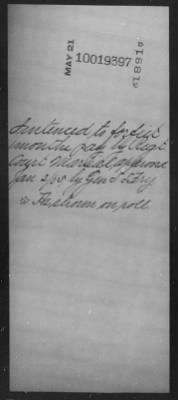 MAY 21
10019397
1891
Sentenced to forfeit
months pay by Regt
Court Martial approved
Jan 2/65 by Gen
as shown on roll